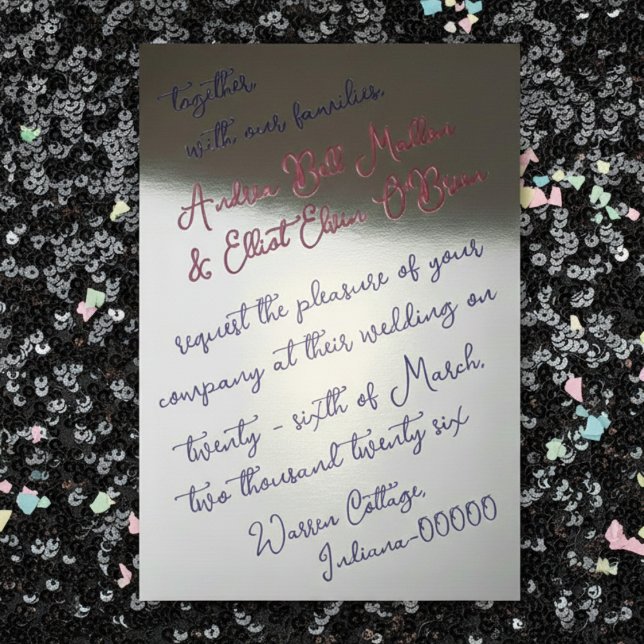 together,
with our families,
Andrea Bell Mallon
& Elliot Elvin O'Brian
request the pleasure of your
company at their wedding on
twenty - sixth of March,
two thousand twenty six
Warren Cottage,
Indiana-00000